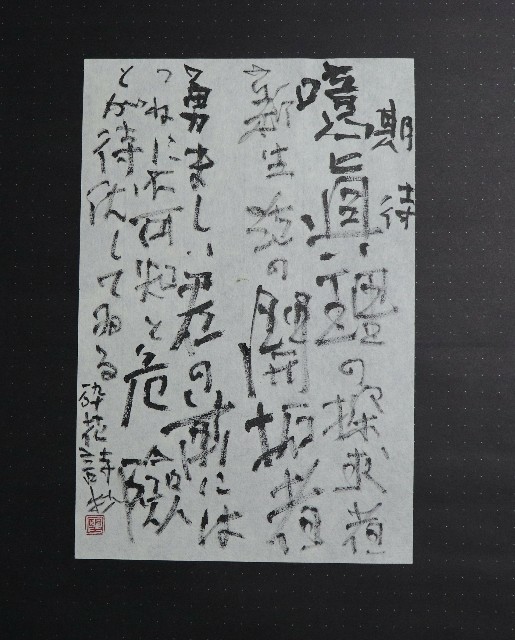 期待
噫真理の探求者
新生活の開拓者
勇ましい君の前には
つねに不可知と危険
とが待伏して居る
碎花詩抄